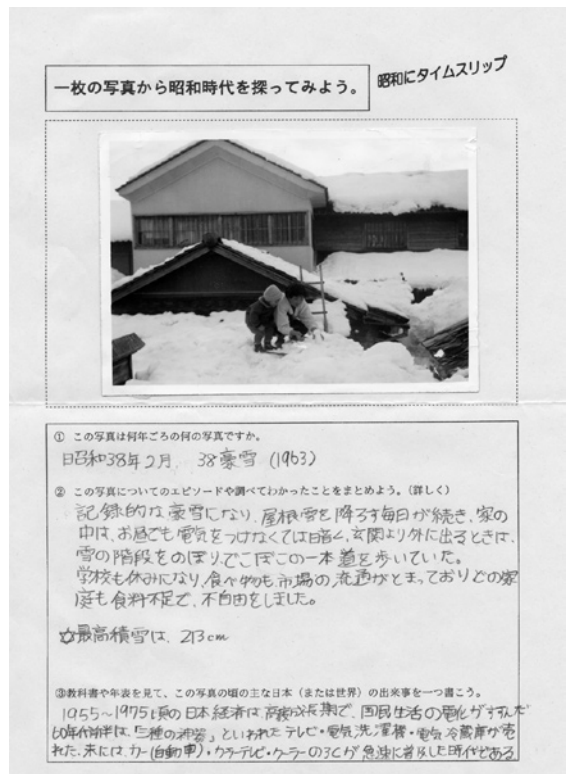 一枚の写真から昭和時代を探ってみよう。
昭和にタイムスリップ
① この写真は何年ごろの何の写真ですか。
昭和38年2月、38豪雪 (1963)
② この写真についてのエピソードや調べてわかったことをまとめよう。(詳しく)
記録的な豪雪になり、屋根雪を降ろす毎日が続き、家の
中は、お昼でも電気をつけなくては暗く、玄関より外に出るときは、
雪の階段をのぼり、でこぼこの一本道を歩いていた。
学校も休みになり、食べ物も市場の流通がとまっておりどの家
庭も食料不足で、不自由をしました。
☆最高積雪は、213cm
③教科書や年表を見て、この写真の頃の主な日本（または世界）の出来事を一つ書こう。
1955～1975頃の日本経済は高度成長期で、国民生活の電化がすすんだ
60年代前半は、「三種の神器」といわれたテレビ・電気洗濯機・電気冷蔵庫が売
れた。末には、カー(自動車)・カラーテレビ・クーラーの3Cが急速に普及した時代である